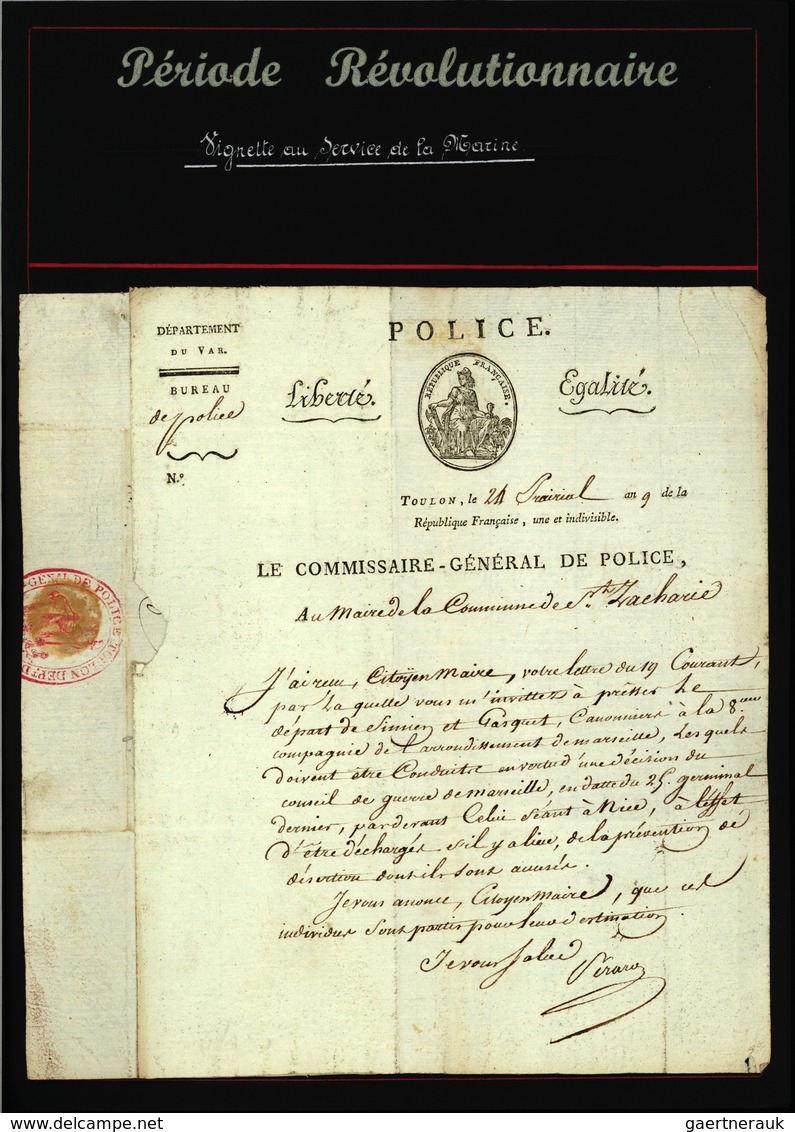 Période Révolutionnaire
Vignette au Service de la Marine
DÉPARTEMENT
DU VAR.
BUREAU
de police
N.º
POLICE.
Liberté.
RÉPUBLIQUE FRANÇAISE.
Egalité.
TOULON, le 24 Prairial an 9 de la
République Française, une et indivisible.
LE COMMISSAIRE-GÉNÉRAL DE POLICE,
Au Maire de la Commune de St. Zacharie
GENAL DE POLICE TOULON DEPT D
J'ai reçu, Citoÿen Maire, votre lettre du 19 Courant,
par la quelle vous m'invittez à présser le
départ de Simier et Gasquet, Canonniers à la 8.eme
compagnie de l'arrondissement de marseille, les quels
doivent être Conduits en vertu d'une décision du
conseil de guerre de marseille, en datte du 25 germinal
dernier, par devant Celui séant à Nice, à l'effet
d'être déchargés s'il y a lieu, de la prévention de
désertion dont ils sont accusés.
Je vous anonce, Citoyen Maire, que ces
individus sont partis pour leur destination.
Je vous salue
gaertnerauk